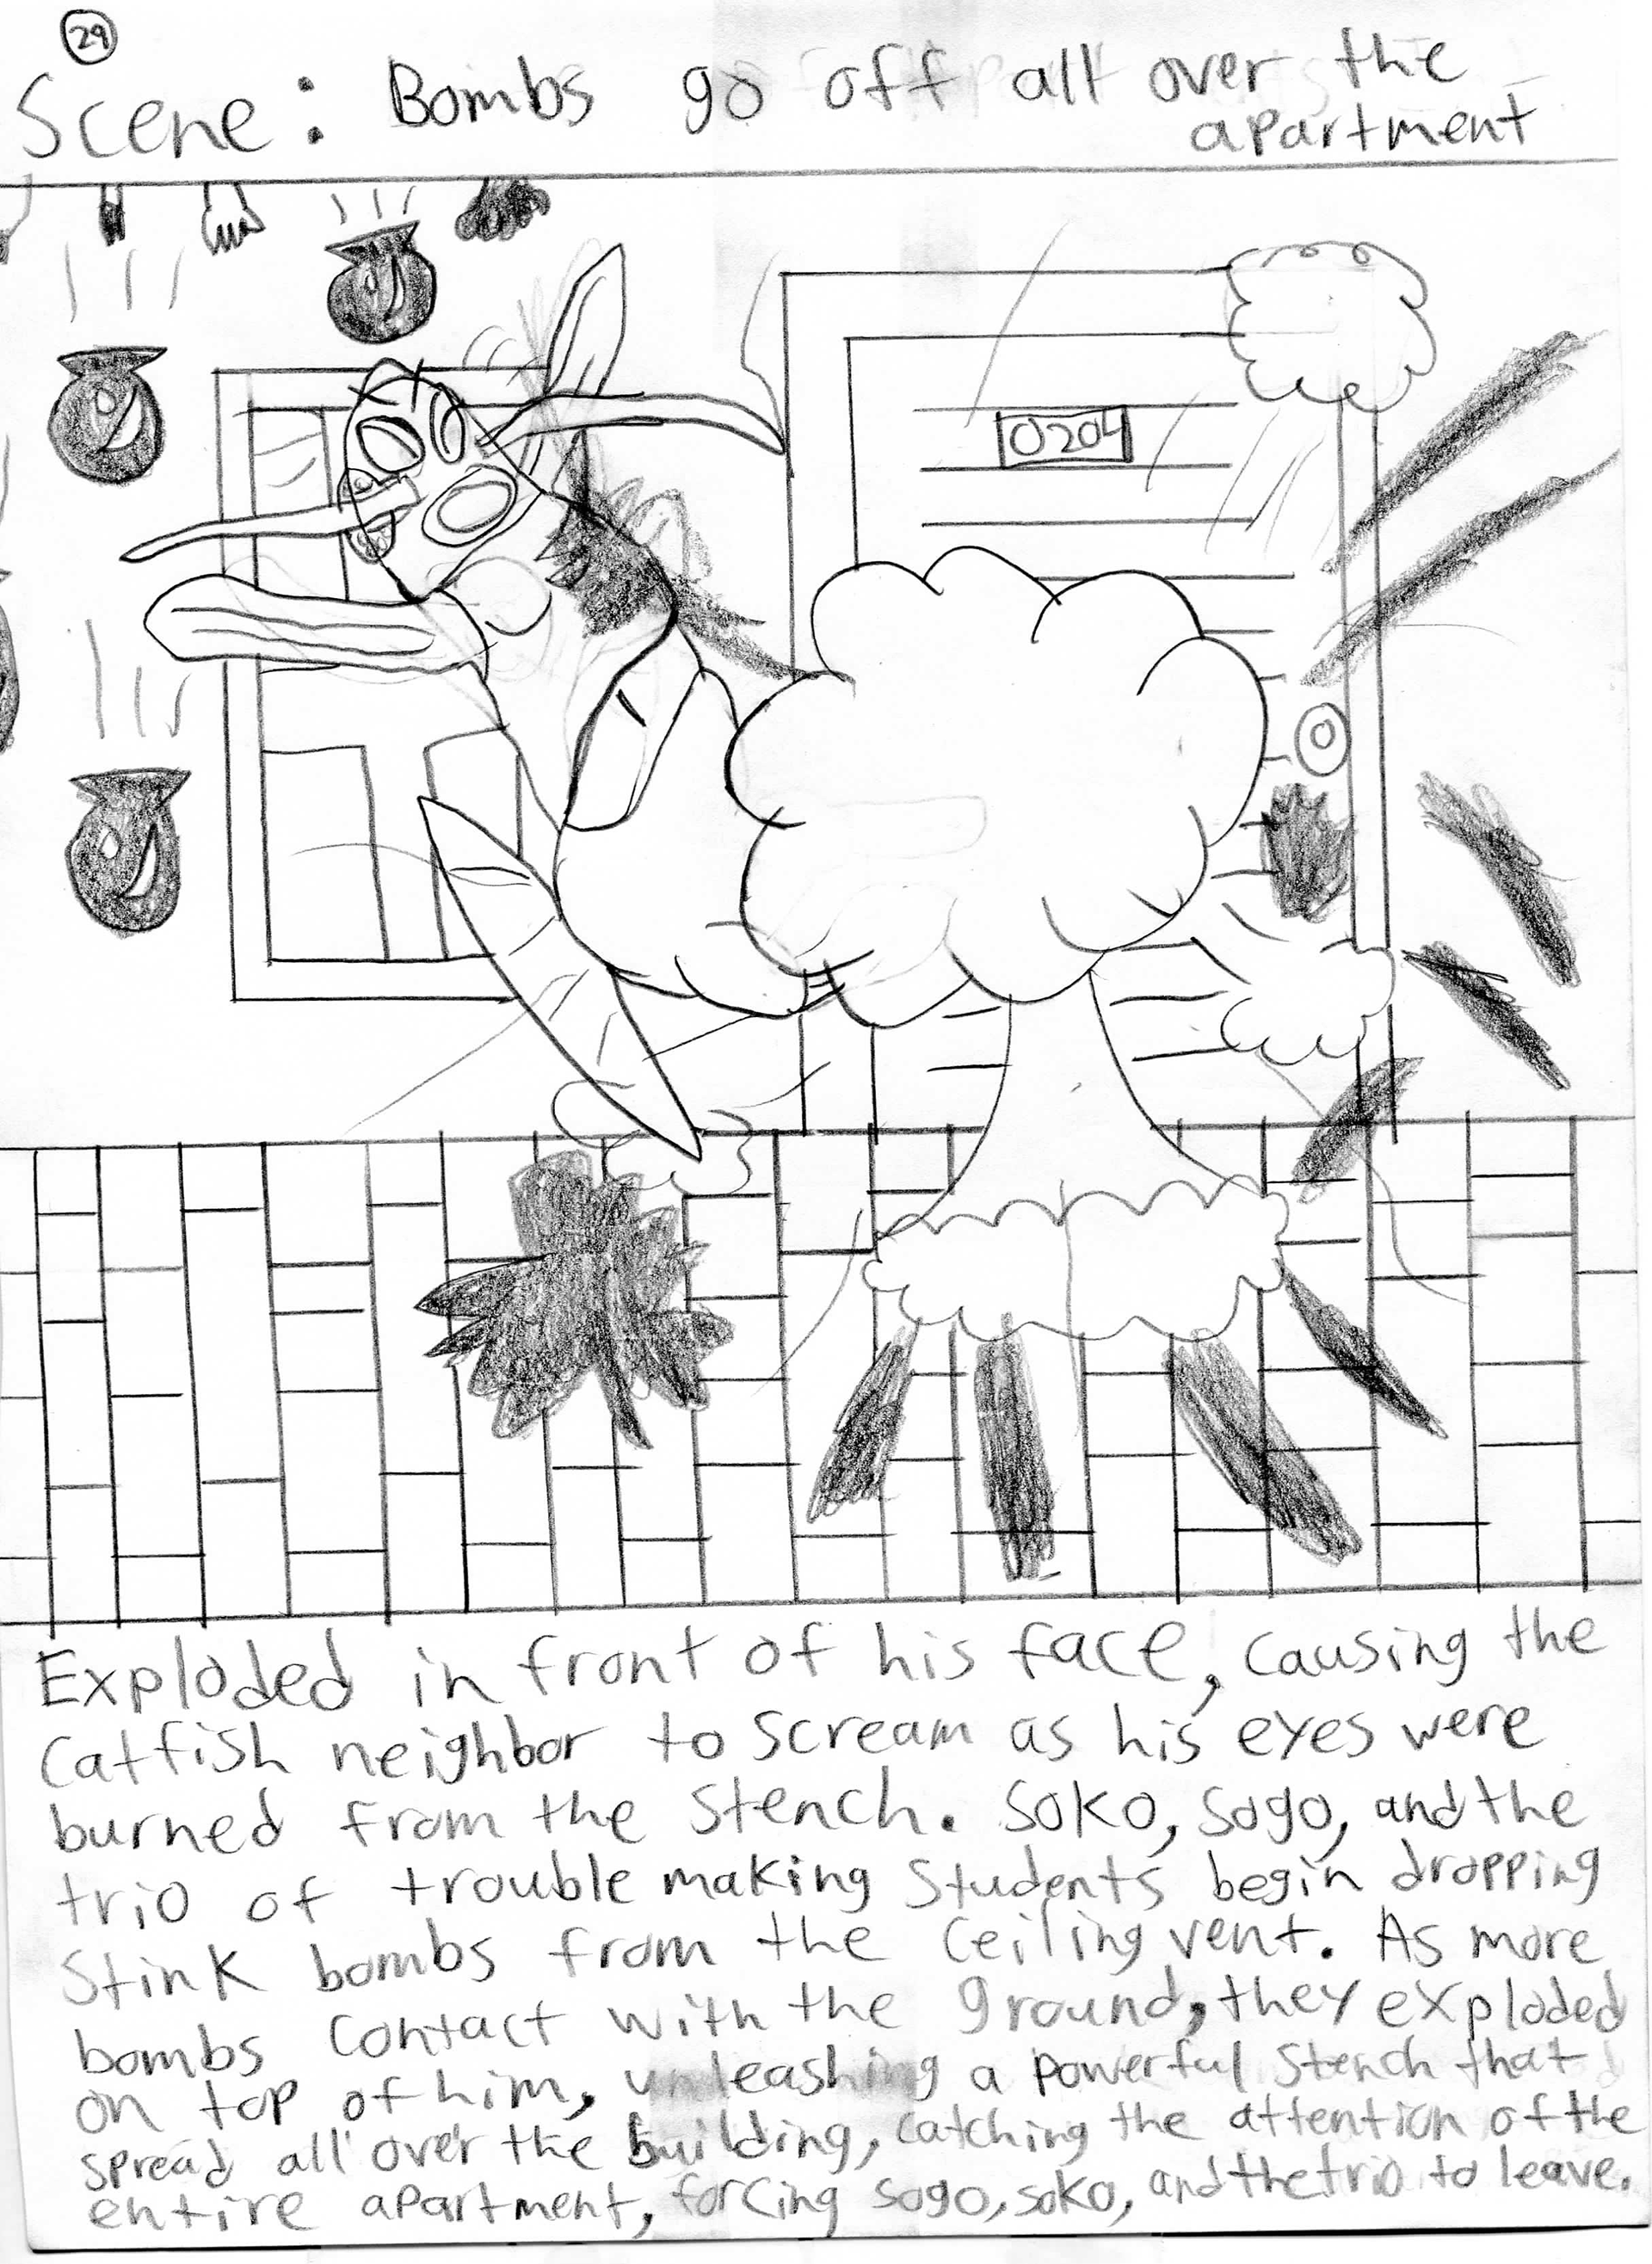 29
Scene: Bombs go off all over the
apartment
0204
Exploded in front of his face, causing the
Catfish neighbor to scream as his eyes were
burned from the stench. Soko, Sogo, and the
trio of trouble making students begin dropping
Stink bombs from the ceiling vent. As more
bombs contact with the ground, they exploded
on top of him, unleashing a powerful stench that
spread all over the building, catching the attention of the
entire apartment, forcing sogo, soko, and the trio to leave.